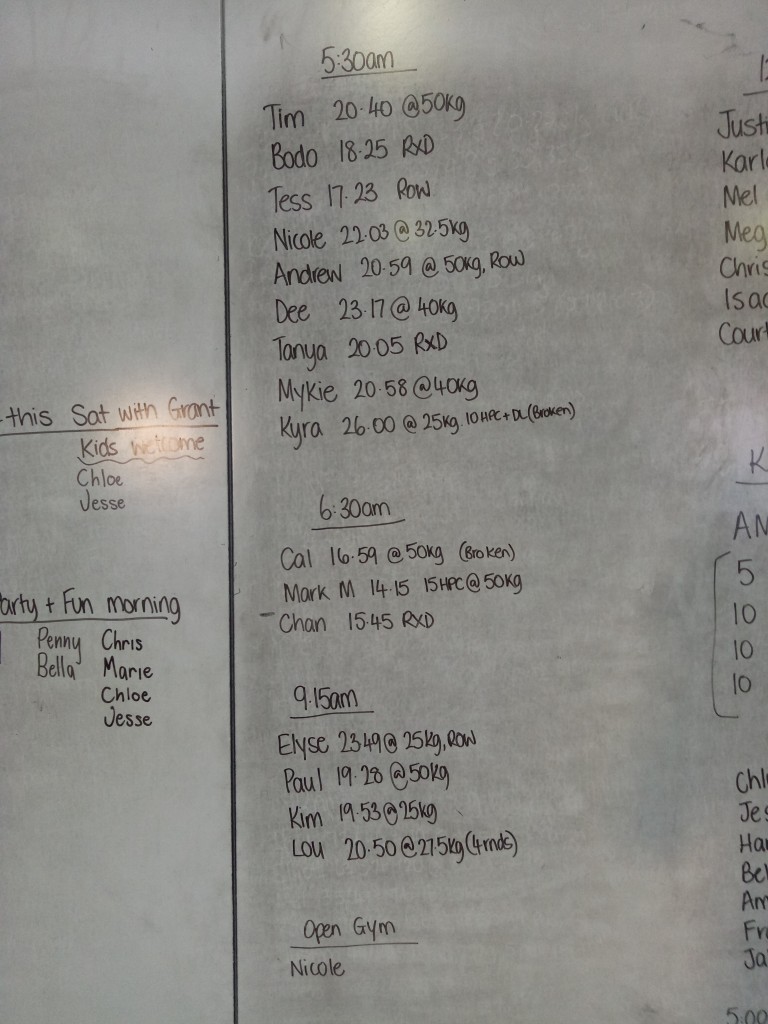 this Sat with Grant
Kids welcome
Chloe
Jesse
+ Fun morning
Penny Chris
Bella Marie
Chloe
Jesse
5:30am
Tim 20.40 @50kg
Bodo 18.25 RXD
Tess 17.23 Row
Nicole 22.03 @ 32.5kg
Andrew 20.59 @ 50kg, Row
Dee 23.17 @ 40kg
Tanya 20.05 RXD
Mykie 20.58 @40kg
Kyra 26.00 @ 25kg. 10HPC + DL (Broken)
6:30am
Cal 16.59 @50kg (Broken)
Mark M 14.15 15HPC @ 50kg
- Chan 15.45 RXD
9.15am
Elyse 23.49 @ 25kg, ROW
Paul 19.28 @50kg
Kim 19.53 @25kg
Lou 20.50 @27.5kg (4rnds)
Open Gym
Nicole
Mel
Meg
Chris
5
10
10
10